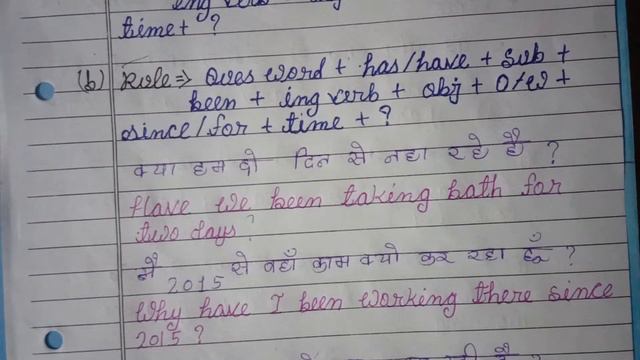 time + ?
(b) Rule ⇒ Ques word + has/have + sub +
been + ing verb + obj + O/ew +
since/for + time + ?
क्या हम दो दिन से नहा रहे है ?
Have we been taking bath for
two days ?
मै 2015 से वहाँ काम क्यो कर रहा हूँ ?
Why have I been working there since
2015 ?